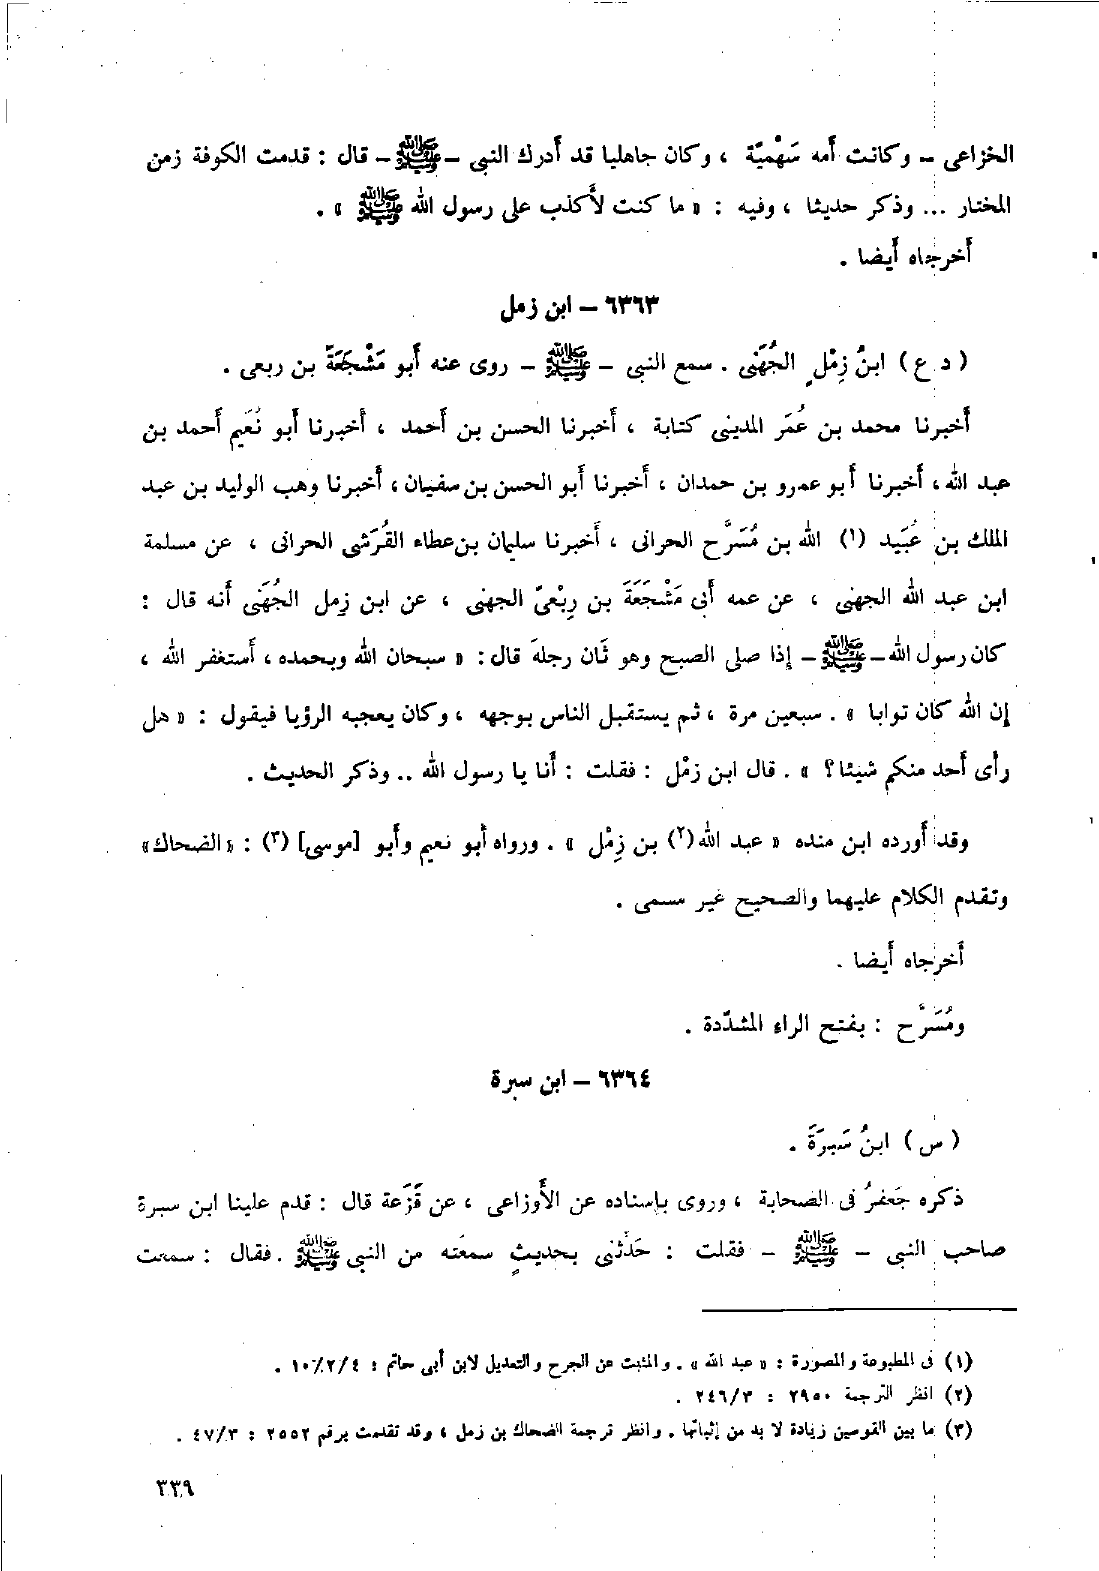 الخزاعى – وكانت أمه سَهْمِيّة ، وكان جاهليا قد أدرك النبى – ﷺ – قال : قدمت الكوفة زمن
المختار ... وذكر حديثا ، وفيه : « ما كنت لأكذب على رسول الله ﷺ » .
أخرجاه أيضا .
٦٣٦٣ – ابن زمل
( د ع ) ابنُ زِمْلٍ الجُهَنى . سمع النبى – ﷺ – روى عنه أبو مَشْجَعَةَ بن ربعى .
أخبرنا محمد بن عُمَر المدينى كتابة ، أخبرنا الحسن بن أحمد ، أخبرنا أبو نُعَيم أحمد بن
عبد الله ، أخبرنا أبو عمرو بن حمدان ، أخبرنا أبو الحسن بن سفيان ، أخبرنا وهب الوليد بن عبد
الملك بن عُبَيد (١) الله بن مُسَرَّح الحرانى ، أخبرنا سليمان بن عطاء القُرَشى الحرانى ، عن مسلمة
ابن عبد الله الجهنى ، عن عمه أبى مَشْجَعَةَ بن رِبْعىّ الجهنى ، عن ابن زمل الجُهَنى أنه قال :
كان رسول الله – ﷺ – إذا صلى الصبح وهو ثَان رجلهَ قال : « سبحان الله وبحمده ، أستغفر الله ،
إن الله كان توابا » . سبعين مرة ، ثم يستقبل الناس بوجهه ، وكان يعجبه الرؤيا فيقول : « هل
رأى أحد منكم شيئا؟ » . قال ابن زمْل : فقلت : أنا يا رسول الله .. وذكر الحديث .
وقد أورده ابن منده « عبد الله(٢) بن زِمْل » . ورواه أبو نعيم وأبو [موسى] (٣) : « الضحاك »
وتقدم الكلام عليهما والصحيح غير مسمى .
أخرجاه أيضا .
ومُسَرَّح : بفتح الراء المشدّدة .
٦٣٦٤ – ابن سبرة
( س ) ابنُ سَبرَةَ .
ذكره جَعفرُ فى الصحابة ، وروى بإسناده عن الأوزاعى ، عن قَزَعة قال : قدم علينا ابن سبرة
صاحب النبى – ﷺ – فقلت : حَدِّثنى بحديثٍ سمعتَه من النبى ﷺ . فقال : سمعت
(١) فى المطبوعة والمصورة : « عبد الله » . والمثبت عن الجرح والتعديل لابن أبى حاتم : ١٠/٢/٤ .
(٢) انظر الترجمة ٢٩٥٠ : ٢٤٦/٣ .
(٣) ما بين القوسين زيادة لا بد من إثباتها . وانظر ترجمة الضحاك بن زمل ، وقد تقدمت برقم ٢٥٥٢ : ٤٧/٣ .
٣٣٩